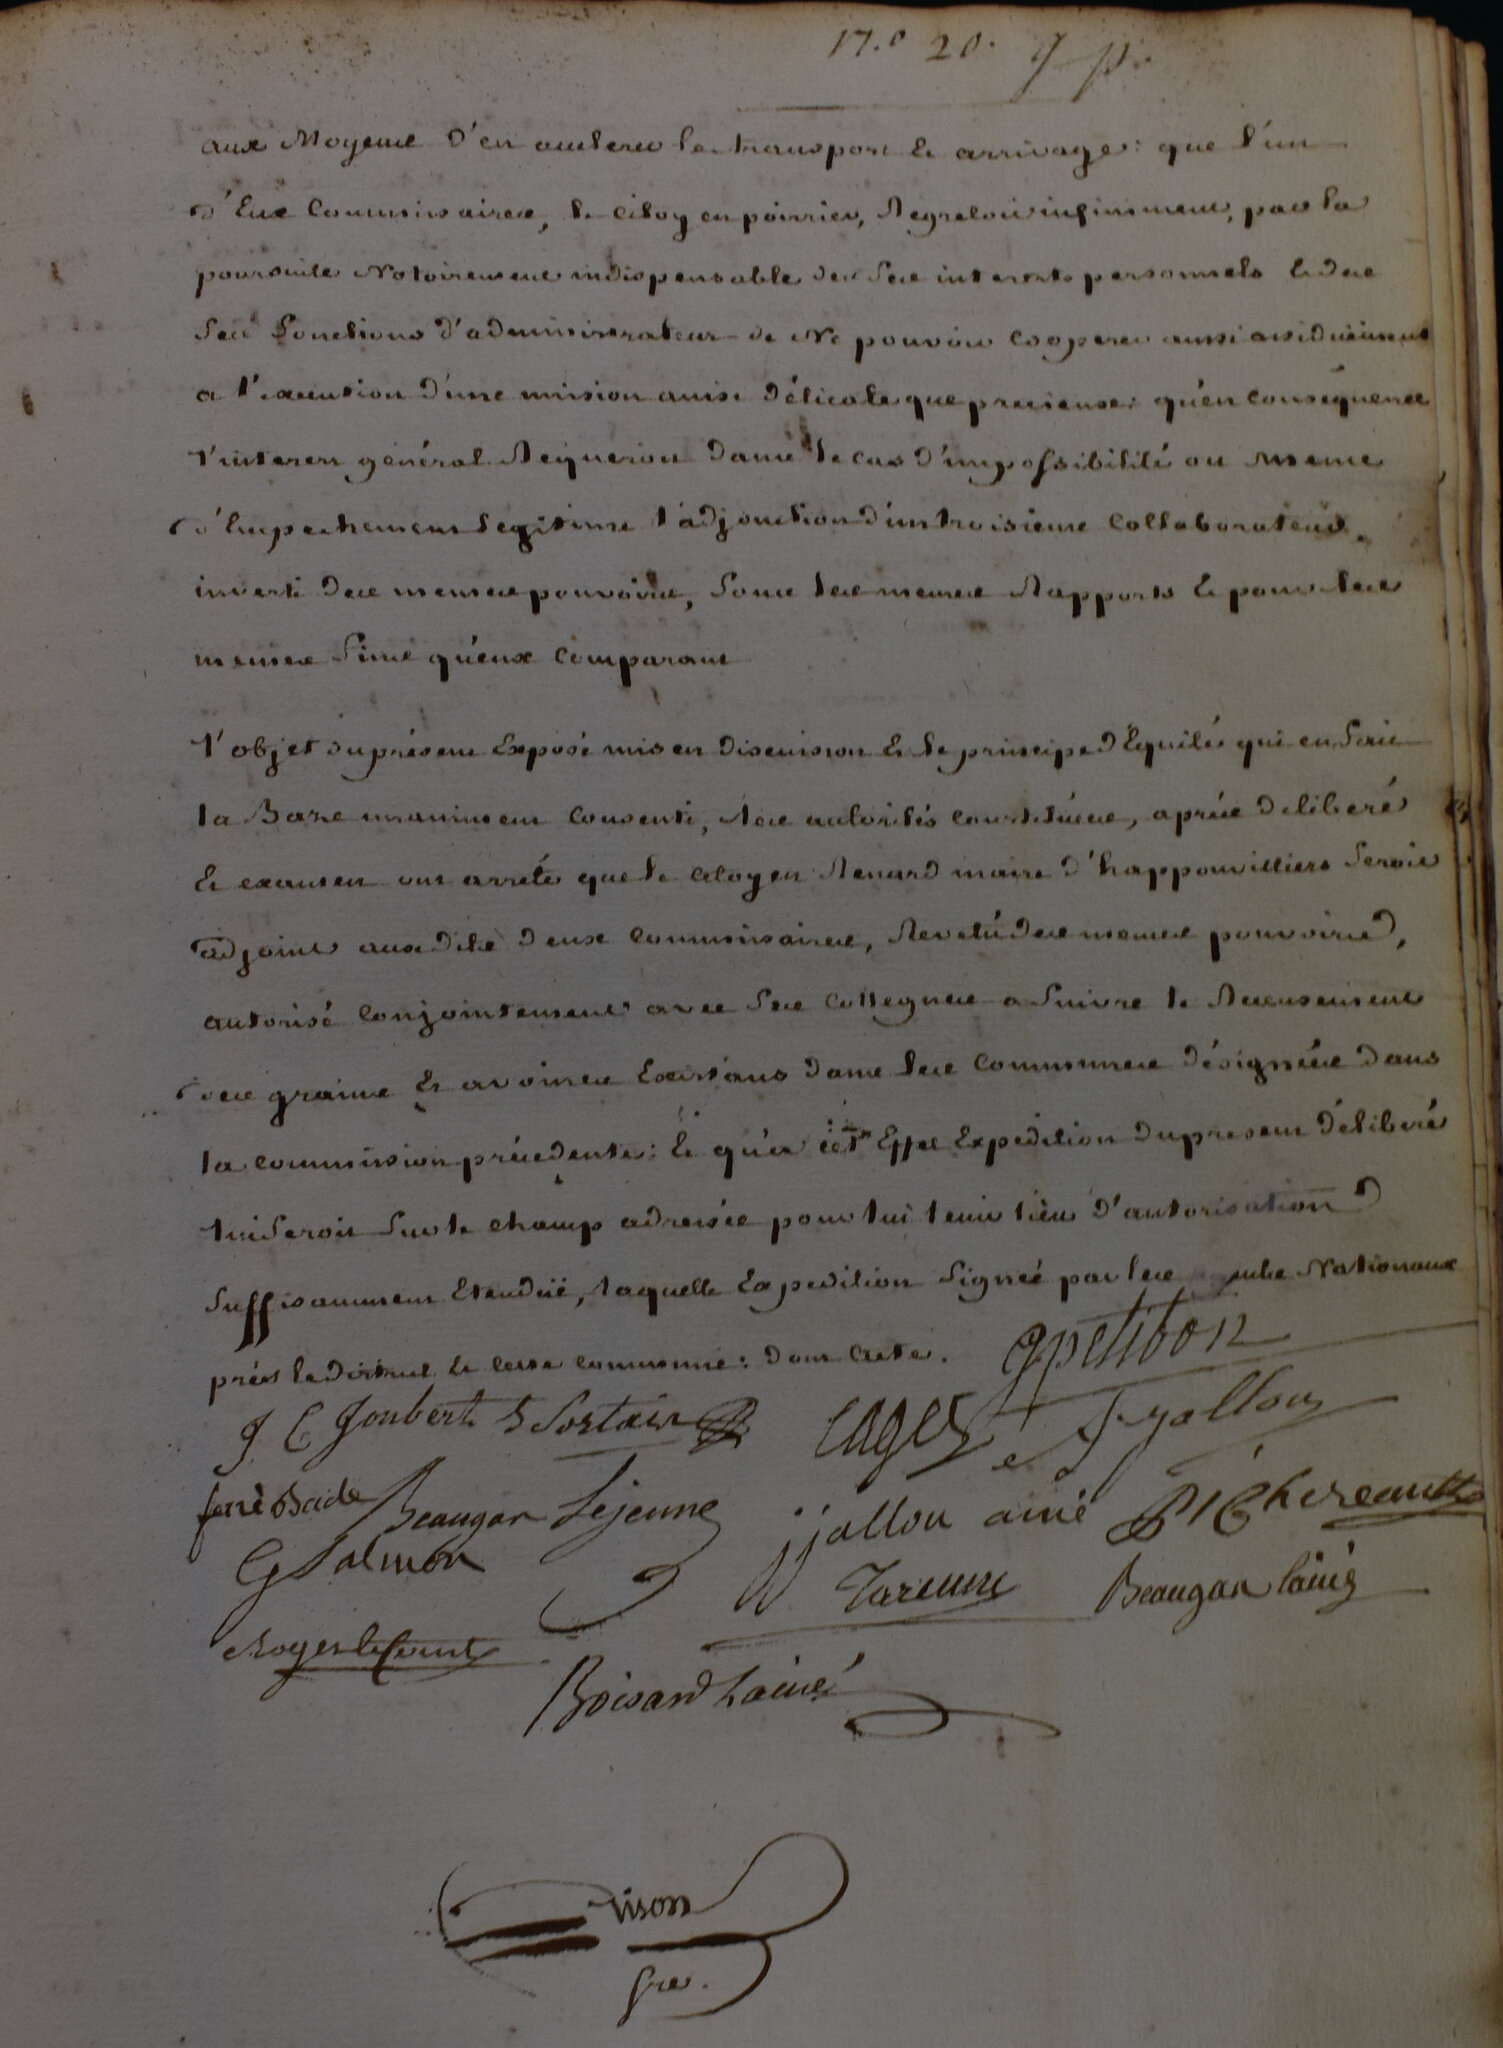 17.e 20. J p.
aux Moyens d'en accelerer le transport & arrivage: que l'un
d'Eux Commissaires, le Citoyen poirrier, Regretoit infiniment, par la
poursuite Notoirement indispensable de Ses interets personnels & de
Ses fonctions d'administrateur de Ne pouvoir cooperer aussi assiduëment
a l'execution d'une mission aussi délicate que precieuse: qu'en conséquence
l'interest général Requeroit dans le cas d'impossibilité ou meme
d'Empechement legitime l'adjonction d'un troisieme Collaborateur,
investi des memes pouvoirs, sous les memes Rapports & pour les
memes fins qu'eux Comparans
L'objet du présent Exposé mis en discussion & le principe d'Equité qui en fait
la Baze unanimement Consenti, les autorités constituées, après deliberé
& examen ont arrêté que le Citoyen Renard maire d'happonvilliers seroit
adjoint auxdits deux commissaires, Revetû des memes pouvoirs,
autorisé conjointement avec Ses Collegues a Suivre le Recensement
des grains & avoines Existans dans les Communes désignées dans
la commission précedente: & qu'a cet Effet Expedition du present délibéré
lui Seroit Sur le champ adressée pour lui tenir lieu d'autorisation
Suffisamment Etenduë, laquelle Expedition Signée par les agents Nationaux
près le district & cette commune: dont Acte.
gpetibon
J C Joubert S Sortais Cages J jallon
Beaugar Lejeune jjallon ainé P Chereault
G Salmon Tarenne Beaugar lainé
Roger le Comte
Boisard Lainé
Vison
Gre.